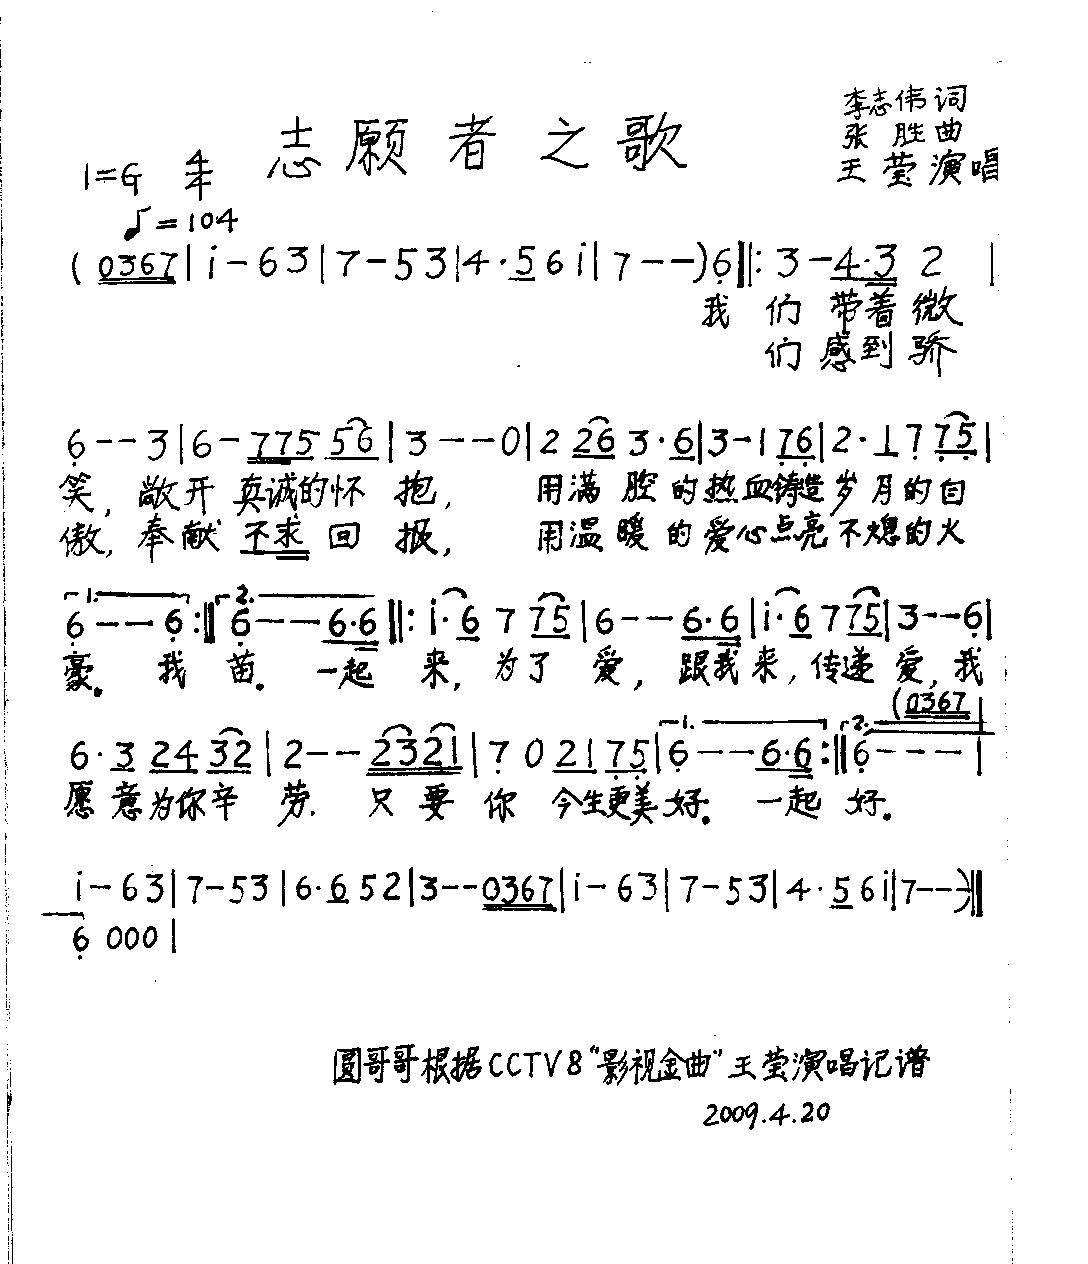 李志伟词
志愿者之歌
张胜曲
1=G 4/4
王莹演唱
♩=104
(0367|i-63|7-53|4·56i|7--)6‖:3-4·3 2|
我们带着微
们感到骄
6--3|6-775 56|3---0|2 26 3·6|3-176|2·17 75|
笑,敞开真诚的怀抱, 用满腔的热血铸造岁月的自
傲,奉献不求回报, 用温暖的爱心点亮不熄的火
1. 2.
6---6:‖6---6·6‖:i·6 7 75|6--6·6|i·6 7 75|3--6|
豪。我苗。一起来,为了爱,跟我来,传递爱,我
(0367|
1. 2.
6·3 24 32|2--2321|7 0 21 75|6--6·6:‖6---|
愿意为你辛劳.只要你今生更美好。一起好。
i-63|7-53|6·652|3--0367|i-63|7-53|4·56i|7--)‖
6 000|
圆哥哥根据CCTV8“影视金曲”王莹演唱记谱
2009.4.20